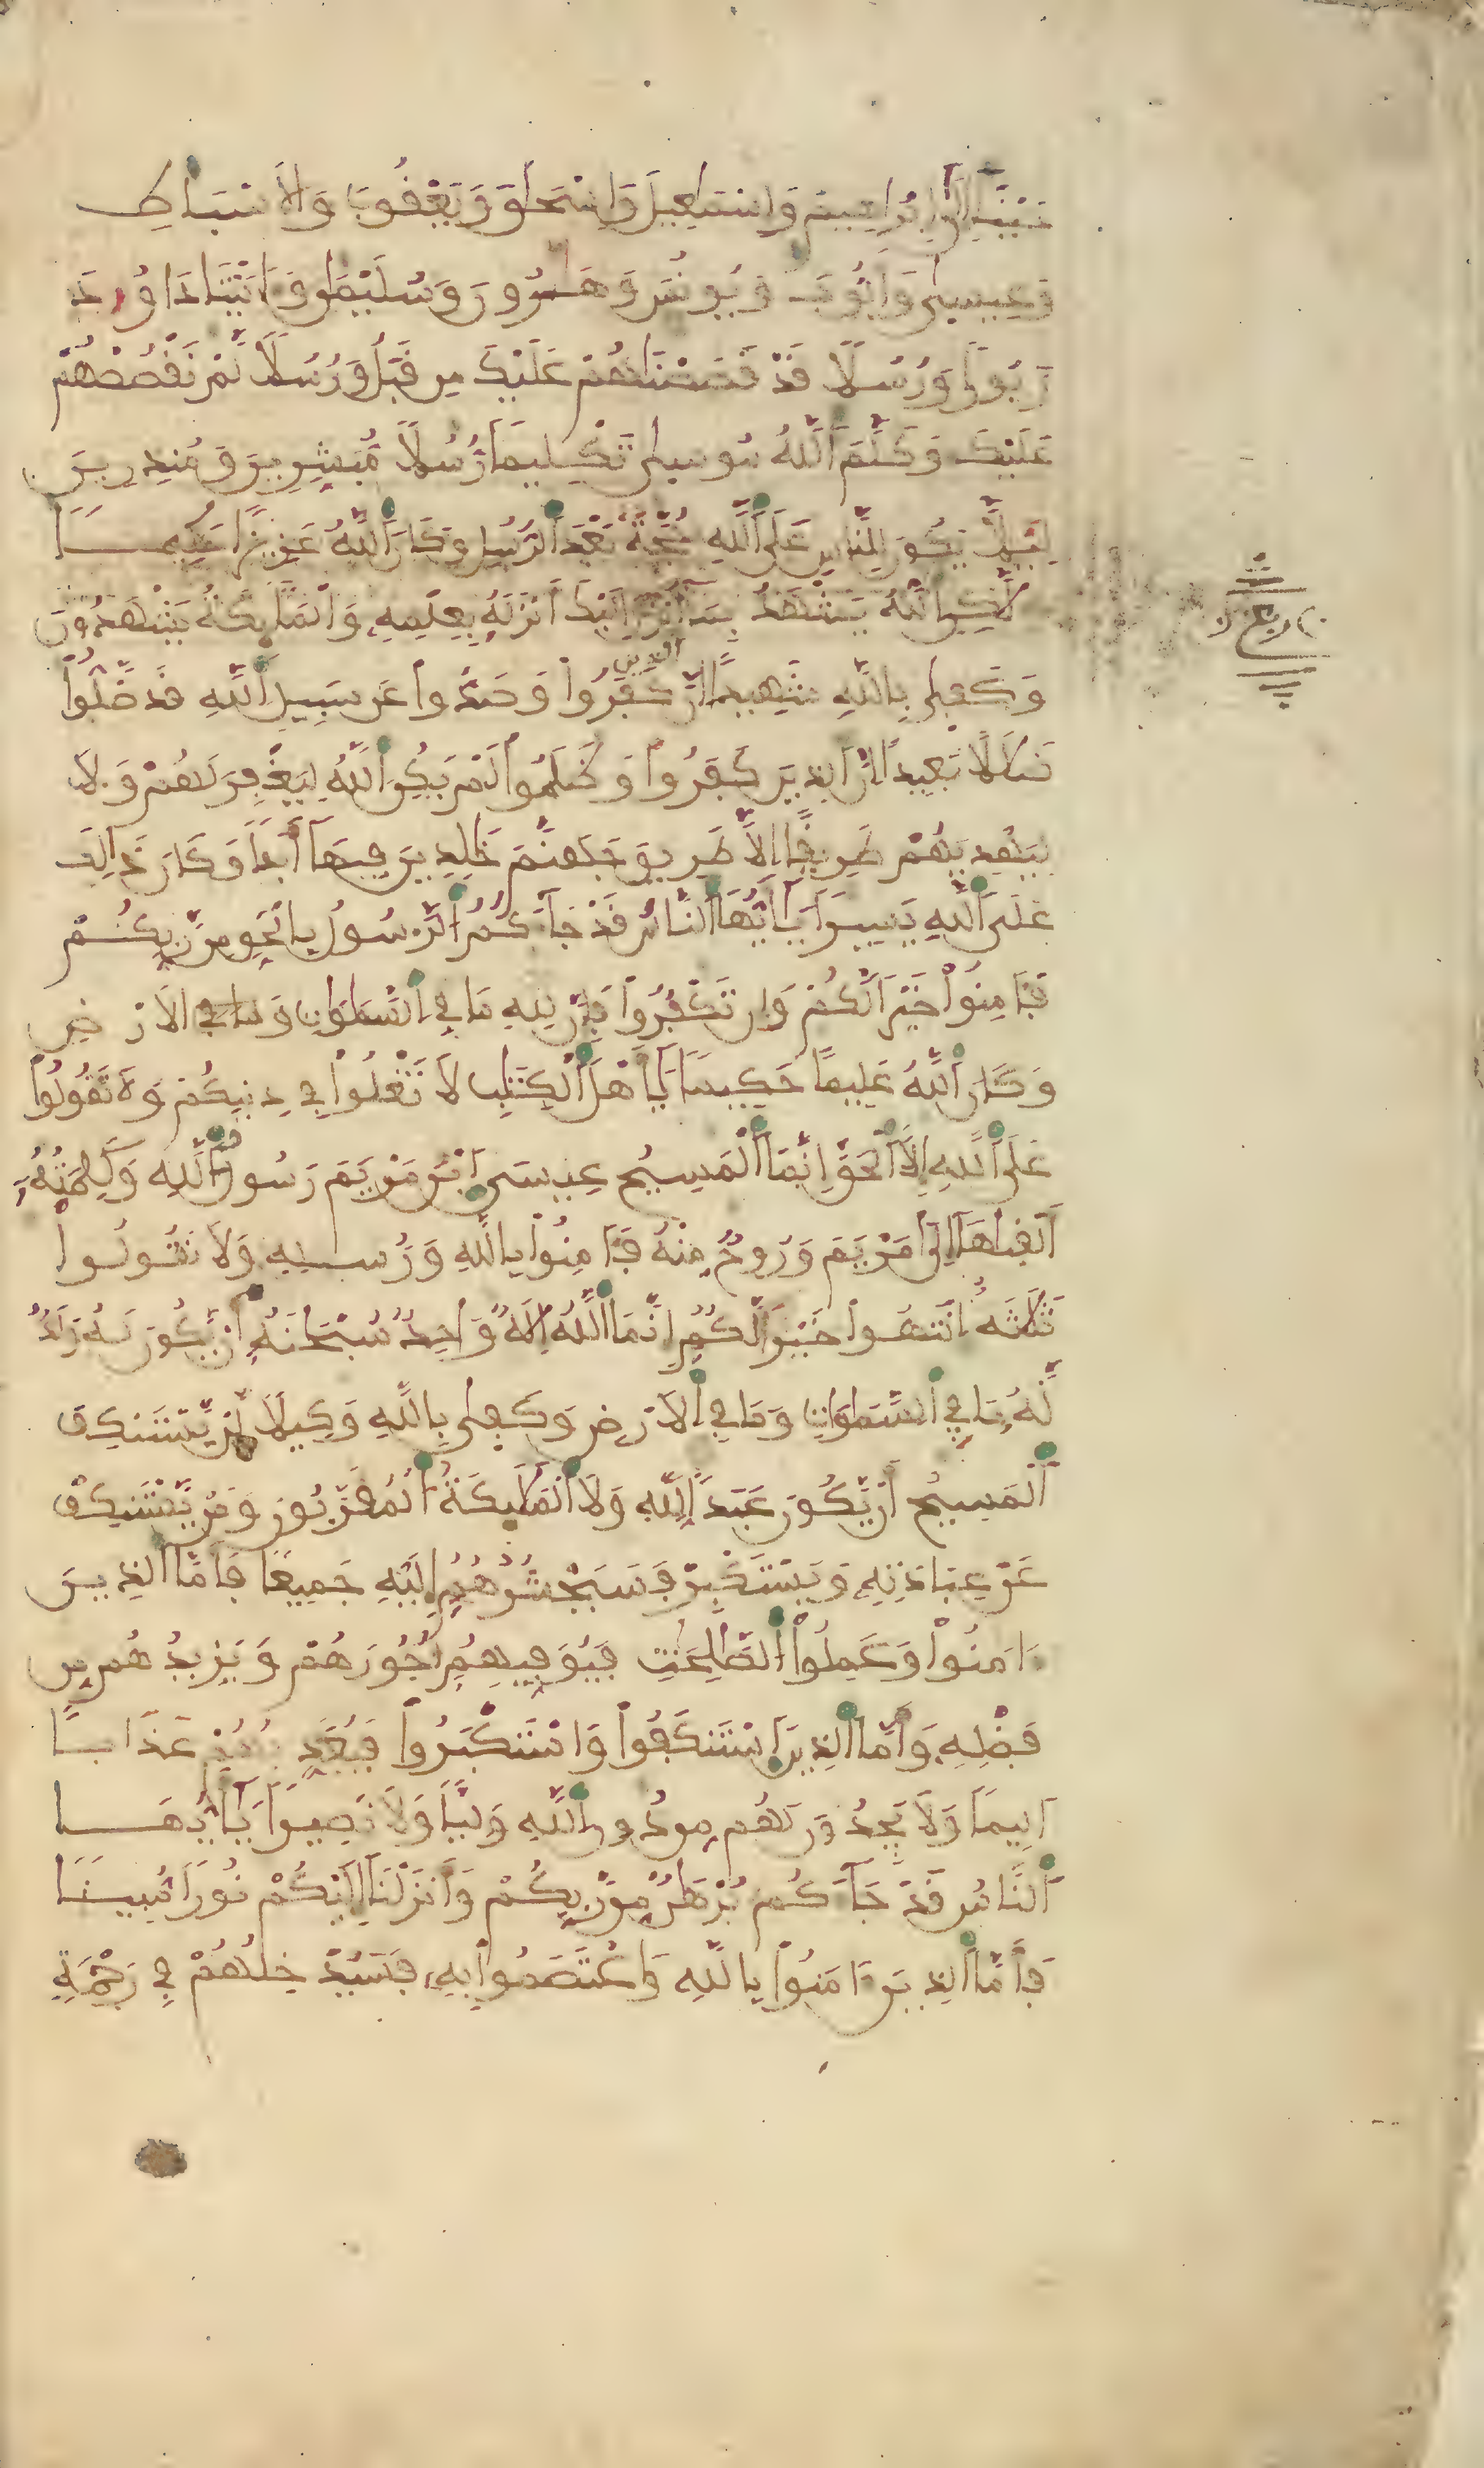 حينا إلى إبراهيم وإسمعيل وإسحاق ويعقوب والاسباط
وعيسى وأيوب ويونس وهرون وسليمن وءاتينا داوود
زبورا ورسلا قد قصصناهم عليك من قبل ورسلا لم نقصصهم
عليك وكلم الله موسى تكليما رسلا مبشرين ومنذرين
ليلا يكون للناس على الله حجة بعد الرسل وكان الله عزيزا حكيما
لكن الله يشهد بما أنزل إليك أنزله بعلمه والملئكة يشهدون
وكفى بالله شهيدا إن الذين كفروا وصدوا عن سبيل الله قد ضلوا
ضلالا بعيدا إن الذين كفروا وظلموا لم يكن الله ليغفر لهم ولا
ليهديهم طريقا إلا طريق جهنم خلدين فيها أبدا وكان ذالك
على الله يسيرا يأيها الناس قد جاءكم الرسول بالحق من ربكم
فئامنوا خيرا لكم وإن تكفروا فإن لله ما في السموات وما في الارض
وكان الله عليما حكيما يأهل الكتب لا تغلوا في دينكم ولا تقولوا
على الله إلا الحق إنما المسيح عيسى ابن مريم رسول الله وكلمته
ألقاها إلى مريم وروح منه فئامنوا بالله ورسله ولا تقولوا
ثلثة انتهوا خيرا لكم إنما الله إله واحد سبحانه أن يكون له ولد
له ما في السموات وما في الارض وكفى بالله وكيلا لن يستنكف
المسيح أن يكون عبدا لله ولا الملئكة المقربون ومن يستنكف
عن عبادته ويستكبر فسيحشرهم إليه جميعا فأما الذين
ءامنوا وعملوا الصلحت فيوفيهم أجورهم ويزيدهم من
فضله وأما الذين استنكفوا واستكبروا فيعذبهم عذابا
اليما ولا يجدون لهم من دون الله وليا ولا نصيرا يأيها
الناس قد جاءكم برهن من ربكم وأنزلنا إليكم نورا مبينا
فأما الذين ءامنوا بالله واعتصموا به فسيدخلهم في رحمة